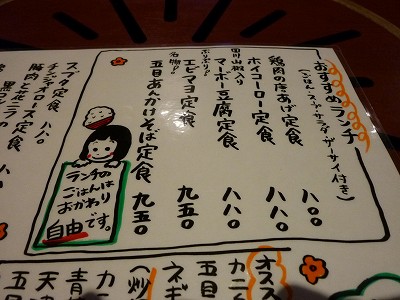 おすすめランチ
(ごはん・スープ・サラダ・ザーサイ付き)
鶏肉の唐あげ定食 八〇〇
ホイコーロー定食 八八〇
四川山椒入り
マーボー豆腐定食 八八〇
ぷりぷり!
エビマヨ定食 九五〇
名物!
五目あんかけそば定食 九五〇
ランチの
ごはんは
おかわり
自由です。
スブタ定食 八八〇
チンジャオロース定食 八八〇
豚肉と
オスス
カニ
五目
ネギ
〈炒
カニ
青
天津
五目